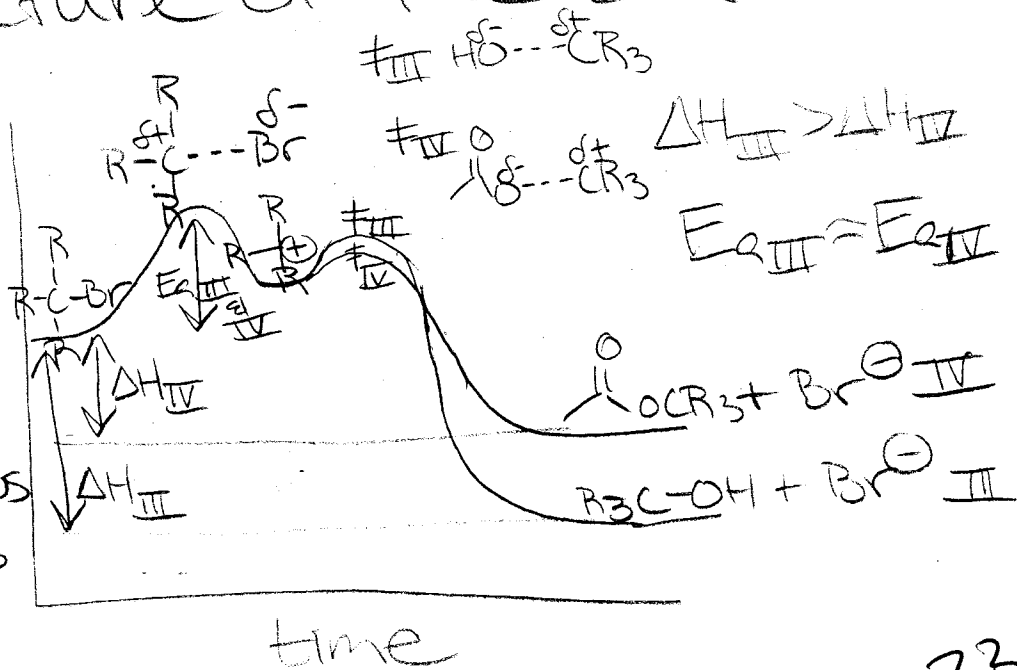 ‡III HO δ- --- δ+ CR3
‡IV O O δ- --- δ+ CR3
ΔHIII > ΔHIV
EaIII ≈ EaIV
R
R-C---Br
δ+ δ-
R
R
R-C-Br
R
R
R ⊕
R
‡III
‡IV
EaIII
& IV
ΔHIV
ΔHIII
O
OCR3 + Br⊖ IV
R3C-OH + Br⊖ III
time